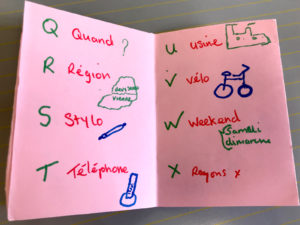 Q Quand ?
R Région
S Stylo
T Téléphone
U Usine
V Vélo
W Weekend
Samedi
dimanche
X Rayons x